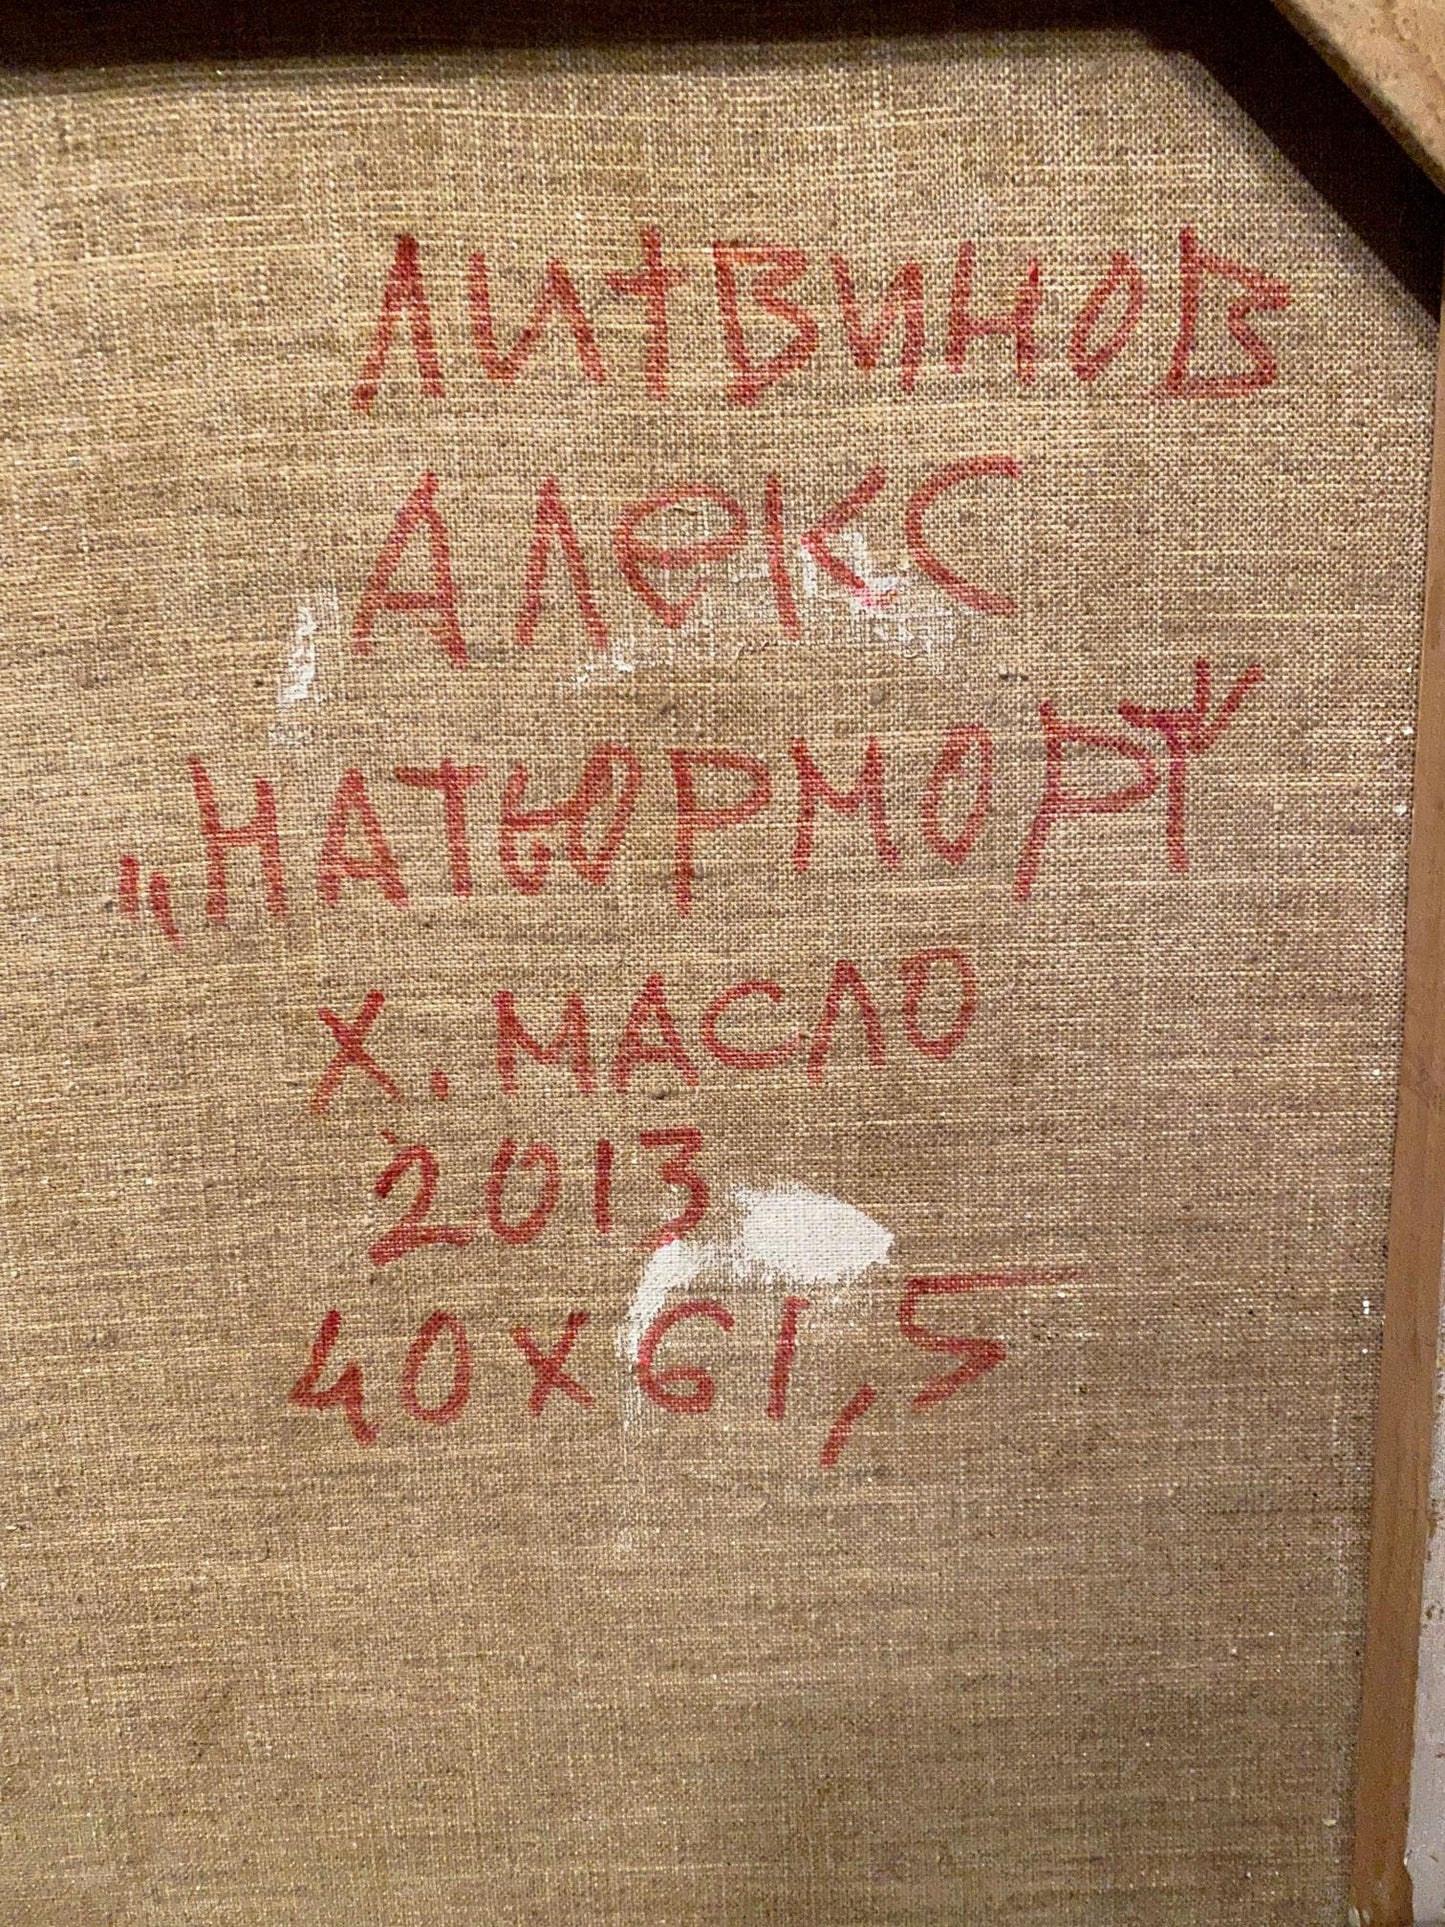 ЛИТВИНОВ
АЛЕКС
„НАТЮРМОРТ"
Х. МАСЛО
2013
40Х61,5